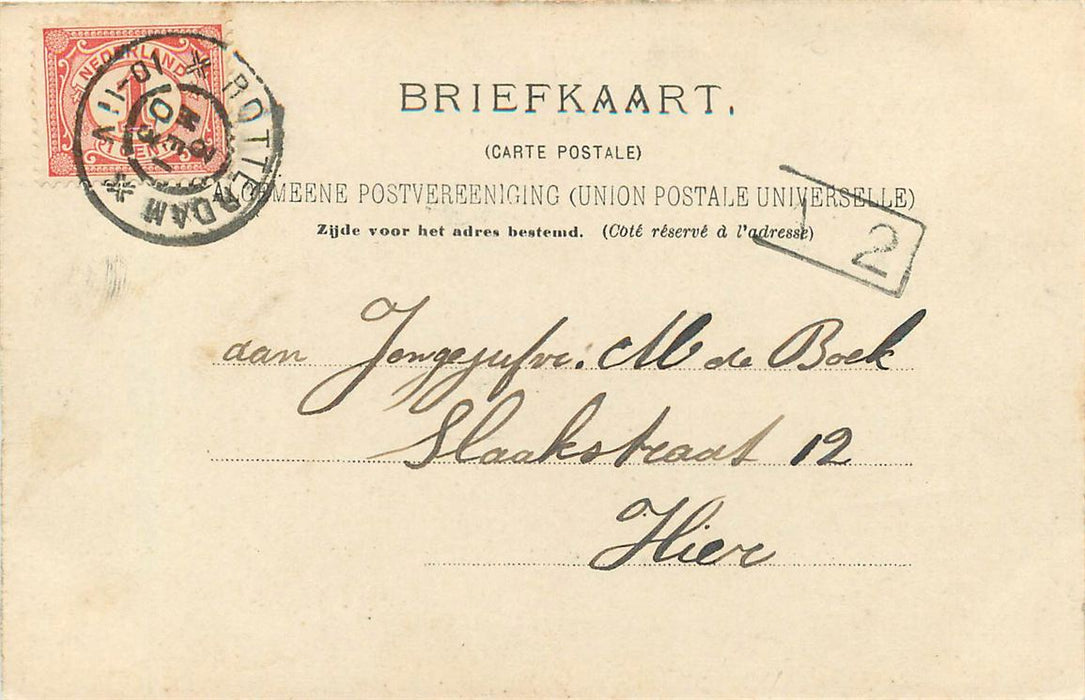 NEDERLAND
1
1 CENT
ROTTERDAM
10-11 V
MEI
BRIEFKAART.
(CARTE POSTALE)
ALGEMEENE POSTVEREENIGING (UNION POSTALE UNIVERSELLE)
Zijde voor het adres bestemd. (Coté réservé à l'adresse)
2
aan Jongejufvr. M de Boek
Slaakstraat 12
Hier